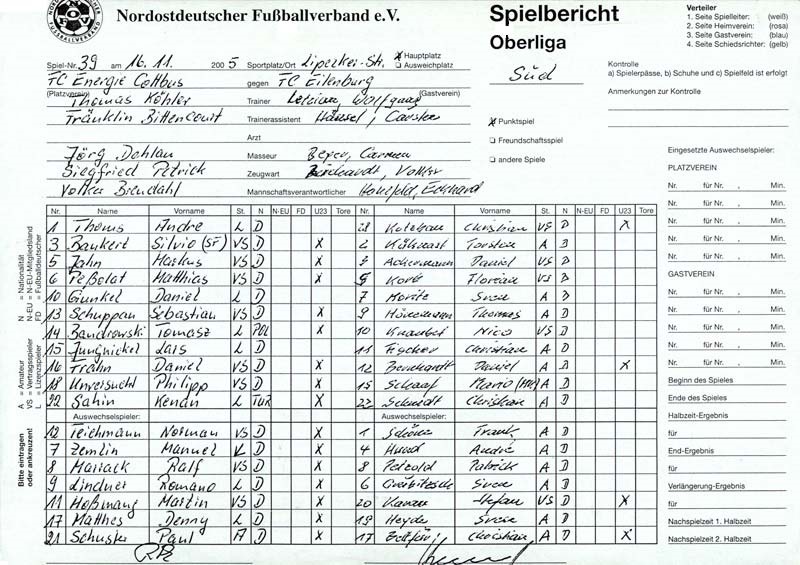 Nordostdeutscher Fußballverband e.V.
Spielbericht
Oberliga
Süd
Verteiler
1. Seite Spielleiter: (weiß)
2. Seite Heimverein: (rosa)
3. Seite Gastverein: (blau)
4. Seite Schiedsrichter: (gelb)
Spiel-Nr. 39 am 16.11. 2005 Sportplatz/Ort Liperkei-Str. x Hauptplatz
Ausweichplatz
FC Energie Cottbus gegen FC Eilenburg
(Platzverein) (Gastverein)
Thomas Köhler Trainer Wolfgang
Franklin Bittencourt Trainerassistent Hänsel, Carsten
Arzt
Jörg Dohlau Masseur Beyer, Carmen
Siegfried Petrick Zeugwart Volker
Volker Brendahl Mannschaftsverantwortlicher Eckhard
x Punktspiel
Freundschaftsspiel
andere Spiele
Kontrolle
a) Spielerpässe, b) Schuhe und c) Spielfeld ist erfolgt
Anmerkungen zur Kontrolle
Nr. Name Vorname St. N N-EU FD U23 Tore Nr. Name Vorname St. N N-EU FD U23 Tore
1 Thoms Andre L D 28 Christian VS D x
3 Bankert Silvio (SF) VS D x 2 Torsten A D
5 Jahn Markus VS D x 3 Ackermann Daniel VS D
6 Peßolat Matthias VS D x 5 Florian VS D
10 Gunkel Daniel L D 7 Moritz Sven A D
13 Schuppan Sebastian VS D x 9 Thomas A D
14 Bandrowski Tomasz L POL x 10 Nico VS D
15 Jungnickel Lars L D 11 Fischer Christian A D
16 Trahn Daniel VS D x 12 Daniel A D x
18 Unversucht Philipp VS D x 15 Schaaf Mario A D
22 Sahin Kenan L TUR x 23 Schmidt Christian A D
Auswechselspieler: Auswechselspieler:
12 Teichmann Norman VS D x 1 Schöne Frank A D
7 Zemlin Manuel L D x 4 Hund André A D
8 Marrack Ralf VS D x 8 Petzold Patrick A D
9 Lindner Romano L D x 6 Sven A D
11 Hoßmang Martin VS D x 20 Stefan VS D x
17 Matthes Denny L D x 19 Heyde Sven A D
21 Schuster Paul A D x 17 Christian A D x
N = Nationalität
N-EU = N-EU-Mitgliedsland
FD = Fußballdeutscher
A = Amateur
VS = Vertragsspieler
L = Lizenzspieler
Bitte eintragen
oder ankreuzen!
Eingesetzte Auswechselspieler:
PLATZVEREIN
Nr. für Nr. , Min.
Nr. für Nr. , Min.
Nr. für Nr. , Min.
Nr. für Nr. , Min.
Nr. für Nr. , Min.
GASTVEREIN
Nr. für Nr. , Min.
Nr. für Nr. , Min.
Nr. für Nr. , Min.
Nr. für Nr. , Min.
Nr. für Nr. , Min.
Beginn des Spieles
Ende des Spieles
Halbzeit-Ergebnis
für
End-Ergebnis
für
Verlängerung-Ergebnis
für
Nachspielzeit 1. Halbzeit
Nachspielzeit 2. Halbzeit